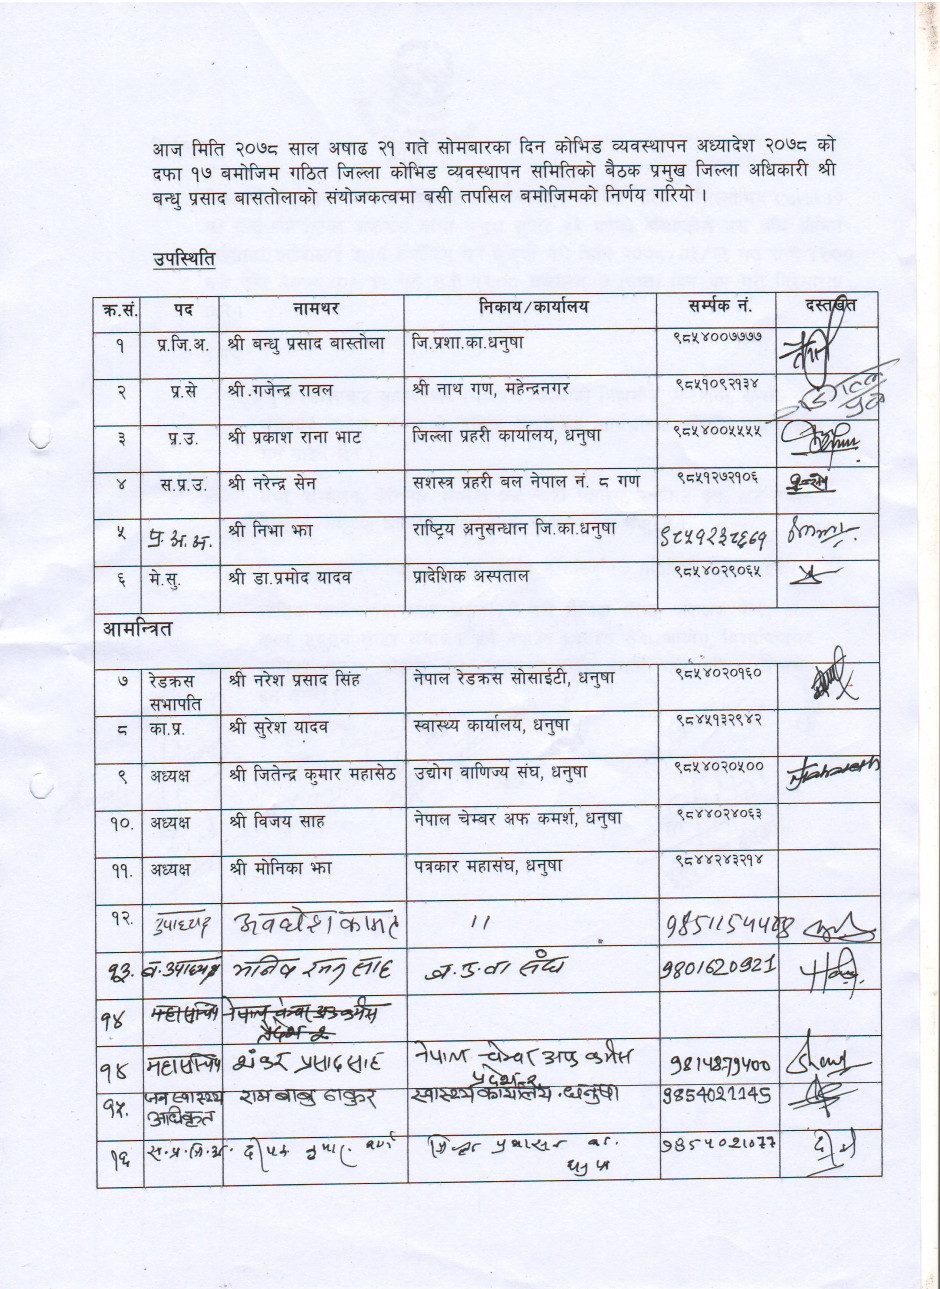 आज मिति २०७८ साल अषाढ २१ गते सोमबारका दिन कोभिड व्यवस्थापन अध्यादेश २०७८ को
दफा १७ बमोजिम गठित जिल्ला कोभिड व्यवस्थापन समितिको बैठक प्रमुख जिल्ला अधिकारी श्री
बन्धु प्रसाद बासतोलाको संयोजकत्वमा बसी तपसिल बमोजिमको निर्णय गरियो ।
उपस्थिति
क्र.सं. पद नामथर निकाय/कार्यालय सर्म्पक नं. दस्तखत
१ प्र.जि.अ. श्री बन्धु प्रसाद बास्तोला जि.प्रशा.का.धनुषा ९८५४००७७७७
२ प्र.से श्री.गजेन्द्र रावल श्री नाथ गण, महेन्द्रनगर ९८५१०९२१३४
३ प्र.उ. श्री प्रकाश राना भाट जिल्ला प्रहरी कार्यालय, धनुषा ९८५४००५५५५
४ स.प्र.उ. श्री नरेन्द्र सेन सशस्त्र प्रहरी बल नेपाल नं. ८ गण ९८५१२७२१०६
५ प्र.अ.अ. श्री निभा झा राष्ट्रिय अनुसन्धान जि.का.धनुषा ९८५१२३८६६१
६ मे.सु. श्री डा.प्रमोद यादव प्रादेशिक अस्पताल ९८५४०२९०६५
आमन्त्रित
७ रेडक्रस श्री नरेश प्रसाद सिंह नेपाल रेडक्रस सोसाईटी, धनुषा ९८५४०२०१६०
सभापति
८ का.प्र. श्री सुरेश यादव स्वास्थ्य कार्यालय, धनुषा ९८४५१३२९४२
९ अध्यक्ष श्री जितेन्द्र कुमार महासेठ उद्योग वाणिज्य संघ, धनुषा ९८५४०२०५००
१०. अध्यक्ष श्री विजय साह नेपाल चेम्बर अफ कमर्श, धनुषा ९८४४०२४०६३
११. अध्यक्ष श्री मोनिका झा पत्रकार महासंघ, धनुषा ९८४४२४३२१४
१२. उपाध्यक्ष अवधेश कामत ११
१३. व.उपाध्यक्ष मनिष रमन साह ज.उ.वा संघ 9801620921
१४ महासचिव नेपाल चेम्बर अफ कमर्स
प्रदेश २
१४ महासचिव शंकर प्रसाद साह नेपाल चेम्बर अफ कर्मस 9814879400
प्रदेश २
१५. जनस्वास्थ्य राम बाबु ठाकुर स्वास्थ्य कार्यालय. धनुषा 9854021145
अधिकृत
१६ स.प्र.जि.अ. दीपक कुमार कर्ण जिल्ला प्रशासन का. 9854021077
धनुषा